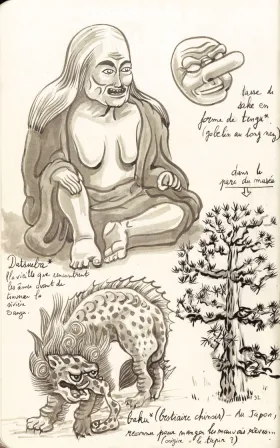 tasse de
sake en
forme de tengu*
(gobelin au long nez)
dans le
parc du musée
Datsueba*
la vieille que rencontrent
les âmes avant de
traverser la
rivière
Sanzu.
baku* (bestiaire chinois) - du Japon,
reconnu pour manger les mauvais rêves...
(origine : le tapir ?)